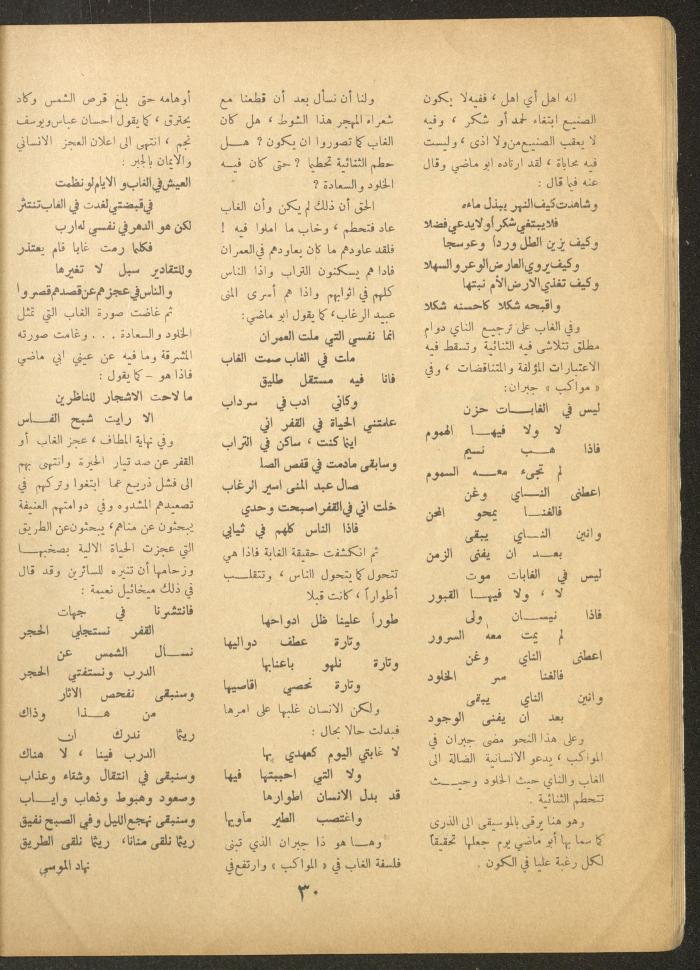 انه اهل أي اهل ، ففيه لا يكون
الصنيع ابتغاء لحمد أو شكر ، وفيه
لا يعقب الصنيع من ولا اذى ، وليست
فيه محاباة ، لقد ارتاده ابو ماضي وقال
عنه فيما قال :
وشاهدت كيف النهر يبذل ماءه
فلا يبتغي شكراً ولا يدعي فضلا
وكيف يزين الطل ورداً وعوسجا
وكيف يروي العارض الوعر والسهلا
وكيف تغذي الارض الأم نبتها
واقبحه شكلا كاحسنه شكلا
وفي الغاب على ترجيع الناي دوام
مطلق تتلاشى فيه الثنائية وتسقط فيه
الاعتبارات المؤلفة والمتناقضات ، وفي
« مواكب » جبران :
ليس في الغابـات حزن
لا ولا فيهـا الهموم
فاذا هـب نسيم
لم تجىء معـه السموم
اعطنى النـاي وغن
فالغنـا يمحو المحن
وانين النـاي يبقى
بعـد ان يفنى الزمن
ليس في الغابات موت
لا ، ولا فيهـا القبور
فاذا نيسـان ولى
لم يمت معه السرور
اعطنى الناي وغن
فالغنا سر الخلود
وانين الناي يبقى
بعد أن يفنى الوجود
وعلى هذا النحو مضى جبران في
المواكب ، يدعو الانسانية الضالة الى
الغاب والناي حيث الخلود وحيـث
تتحطم الثنائية .
وهو هنا يرقى بالموسيقى الى الذرى
كما سما بها أبو ماضي يوم جعلها تحقيقاً
لكل رغبة عليا في الكون .
ولنا أن نسأل بعد أن قطعنا مع
شعراء المهجر هذا الشوط ، هل كان
الغاب كما تصوروا ان يكون ؟ هـل
حطم الثنائية تحطيما ؟ حتى كان فيـه
الخلود والسعادة ؟
الحق أن ذلك لم يكن وأن الغاب
عاد فتحطم ، وخاب ما املوا فيه !
فلقد عاودهم ما كان يعاودهم في العمران
فاذا هم يسكنون التراب واذا الناس
كلهم في اثوابهم واذا هم أسرى المنى
عبيد الرغاب ، كما يقول ابو ماضي :
انما نفسي التي ملت العمران
ملت في الغاب صمت الغاب
فانا فيه مستقل طليق
وكاني ادب في سرداب
علمتني الحياة في القفر اني
اينما كنت ، ساكن في التراب
وسابقى مادمت في قفص الصلـ
صال عبد المنى اسير الرغاب
خلت اني في القفر اصبحت وحدي
فاذا الناس كلهم في ثيابي
ثم انكشفت حقيقة الغابة فاذا هي
تتحول كما يتحول الناس ، وتتقلـب
أطواراً ، كانت قبلا
طوراً علينا ظل ادواحها
وتارة عطف دواليها
وتارة نلهو باعنابها
وتارة نحصي اقاصيها
ولكن الانسان غلبها على امرها
فبدلت حالا بحال :
لا غابتي اليوم كعهدي بها
ولا التي احببتها فيها
قد بدل الانسان اطوارها
واغتصب الطير مأويها
وهـا هو ذا جبران الذي تبنى
فلسفة الغاب في « المواكب » وارتفع في
أوهامه حتى بلغ قرص الشمس وكاد
يحترق ، كما يقول احسان عباس ويوسف
نجم ، انتهى الى اعلان العجز الانساني
والايمان بالجبر :
العيش في الغاب و الايام لو نظمت
في قبضتي لغدت في الغاب تنتثر
لكن هو الدهر في نفسي له ارب
فكلما رمت غابا قام يعتذر
وللتقادير سبل لا تغيرها
والناس في عجزهم عن قصدهم قصروا
ثم غاضت صورة الغاب التي تمثل
الخلود والسعادة ... وغامت صورته
المشرقة وما فيه عن عيني ابي ماضي
فاذا هو – كما يقول :
ما لاحت الاشجار للناظرين
الا رايت شبح الفــاس
وفي نهاية المطاف ، عجز الغاب أو
القفر عن صد تيار الحيرة وانتهى بهم
الى فشل ذريع عما ابتغوا وتركهم في
تصعيدهم المشدوه وفي دوامتهم العنيفة
يبحثون عن مناهم ، يبحثون عن الطريق
التي عجزت الحياة الالية بصخبهـا
وزحامها أن تنيره للسائرين وقد قال
في ذلك ميخائيل نعيمة :
فانتشرنا في جهات
القفر نستجلي الحجر
نسـأل الشمس عن
الدرب ونستفتي الحجر
وسنبقى نفحص الآثار
من هــذا وذاك
ريثما ندرك ان
الدرب فينا ، لا هناك
وسنبقى في انتقال وشقاء وعذاب
وصعود وهبوط وذهاب وايـاب
وسنبقى نهجع الليل وفي الصبح نفيق
ريثما نلقى منانا، ريثما نلقى الطريق
نهاد الموسى
٣٠